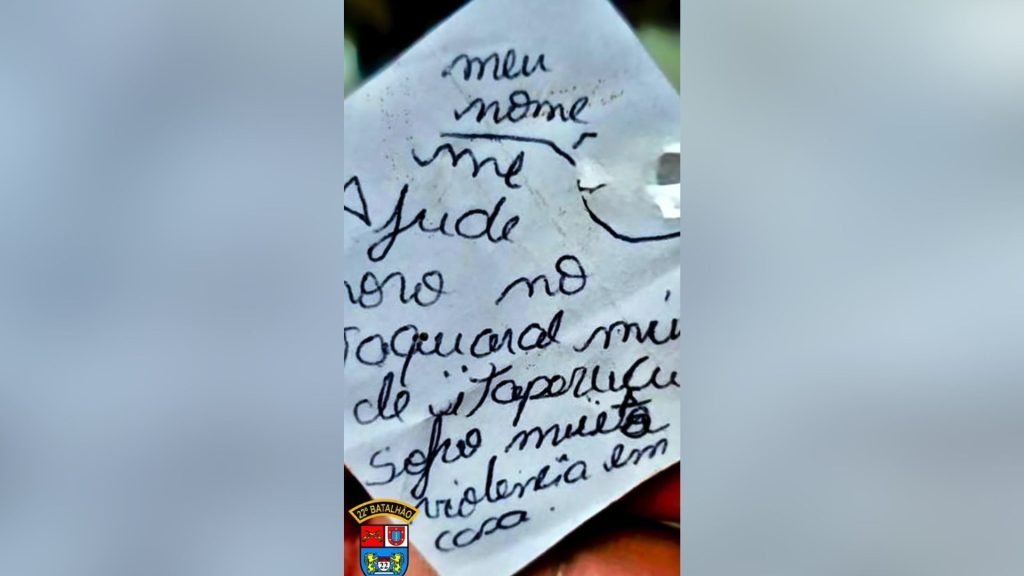 meu
nome
me
Ajude
moro no
Taquaral mu
de itaperuçu
Sofro muito
violencia em
casa.
22º BATALHÃO
22